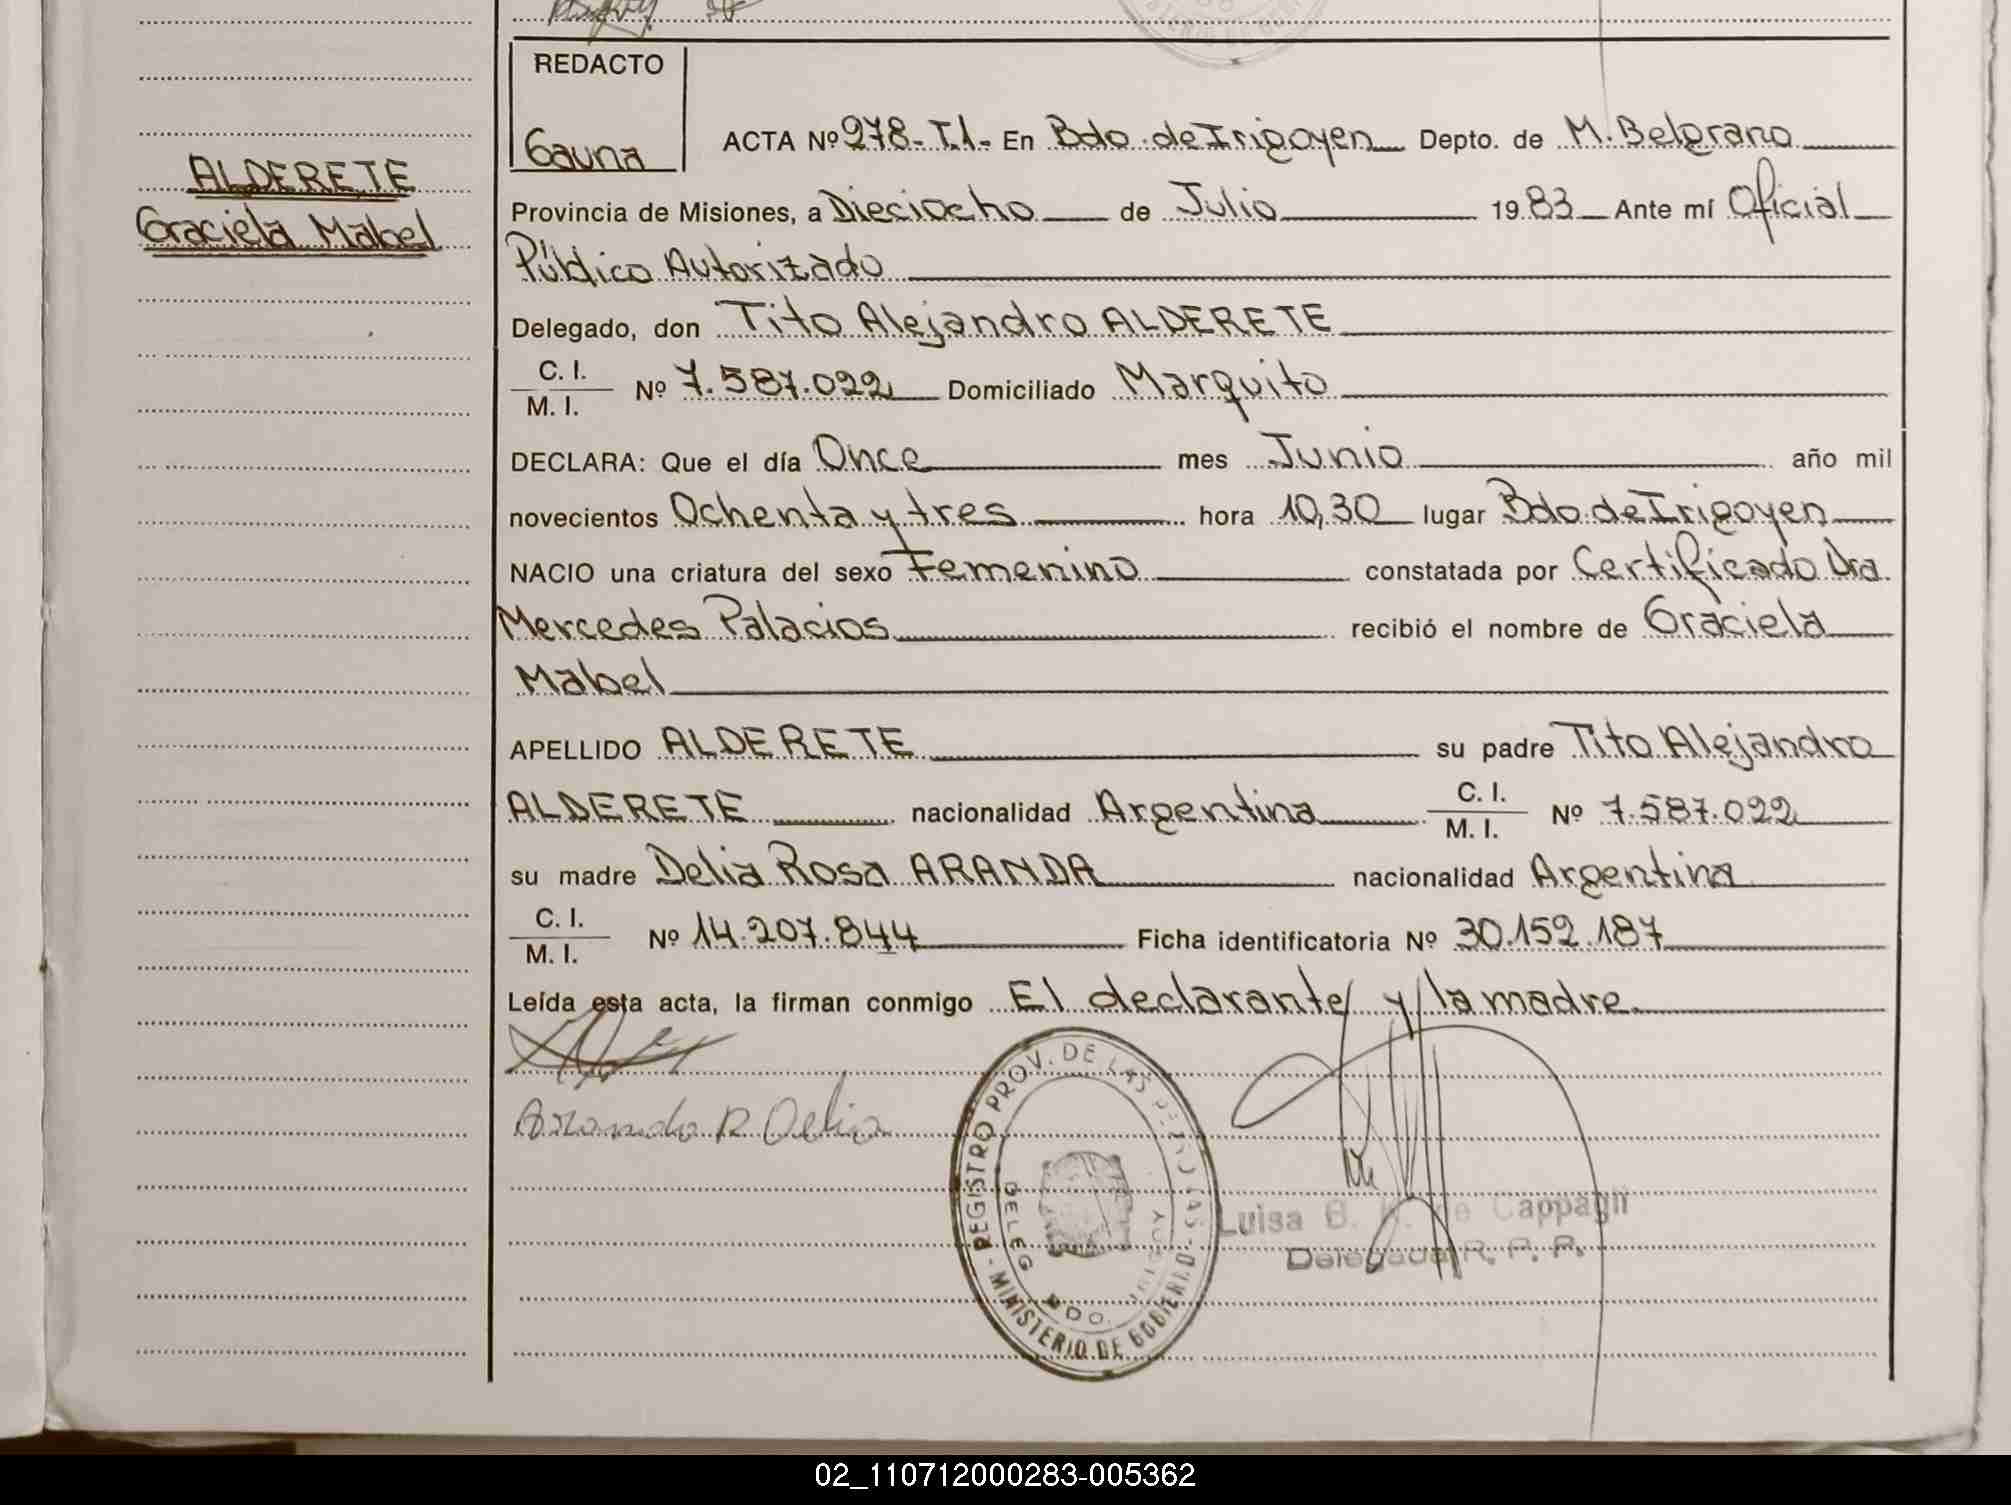 REDACTO
Gauna
ALDERETE
Graciela Mabel
ACTA Nº 278 - T.1 - En Bdo. de Irigoyen Depto. de M. Belgrano
Provincia de Misiones, a Dieciocho de Julio 1983 Ante mí Oficial
Público Autorizado
Delegado, don Tito Alejandro ALDERETE
C. I.
M. I. Nº 7.587.022 Domiciliado Marquito
DECLARA: Que el día Once mes Junio año mil
novecientos Ochenta y tres hora 10,30 lugar Bdo. de Irigoyen
NACIO una criatura del sexo Femenino constatada por Certificado Dra.
Mercedes Palacios recibió el nombre de Graciela
Mabel
APELLIDO ALDERETE su padre Tito Alejandro
ALDERETE nacionalidad Argentina C. I. M. I. Nº 7.587.022
su madre Delia Rosa ARANDA nacionalidad Argentina
C. I.
M. I. Nº 14.207.844 Ficha identificatoria Nº 30.152.187
Leída esta acta, la firman conmigo El declarante y la madre.
Aranda R Delia
REGISTRO PROV. DE LAS PERSONAS - MINISTERIO DE GOBIERNO -
DELEG. BDO. IRIGOY
Luisa B. de Cappagli
Delegada R. P. P.
02_110712000283-005362